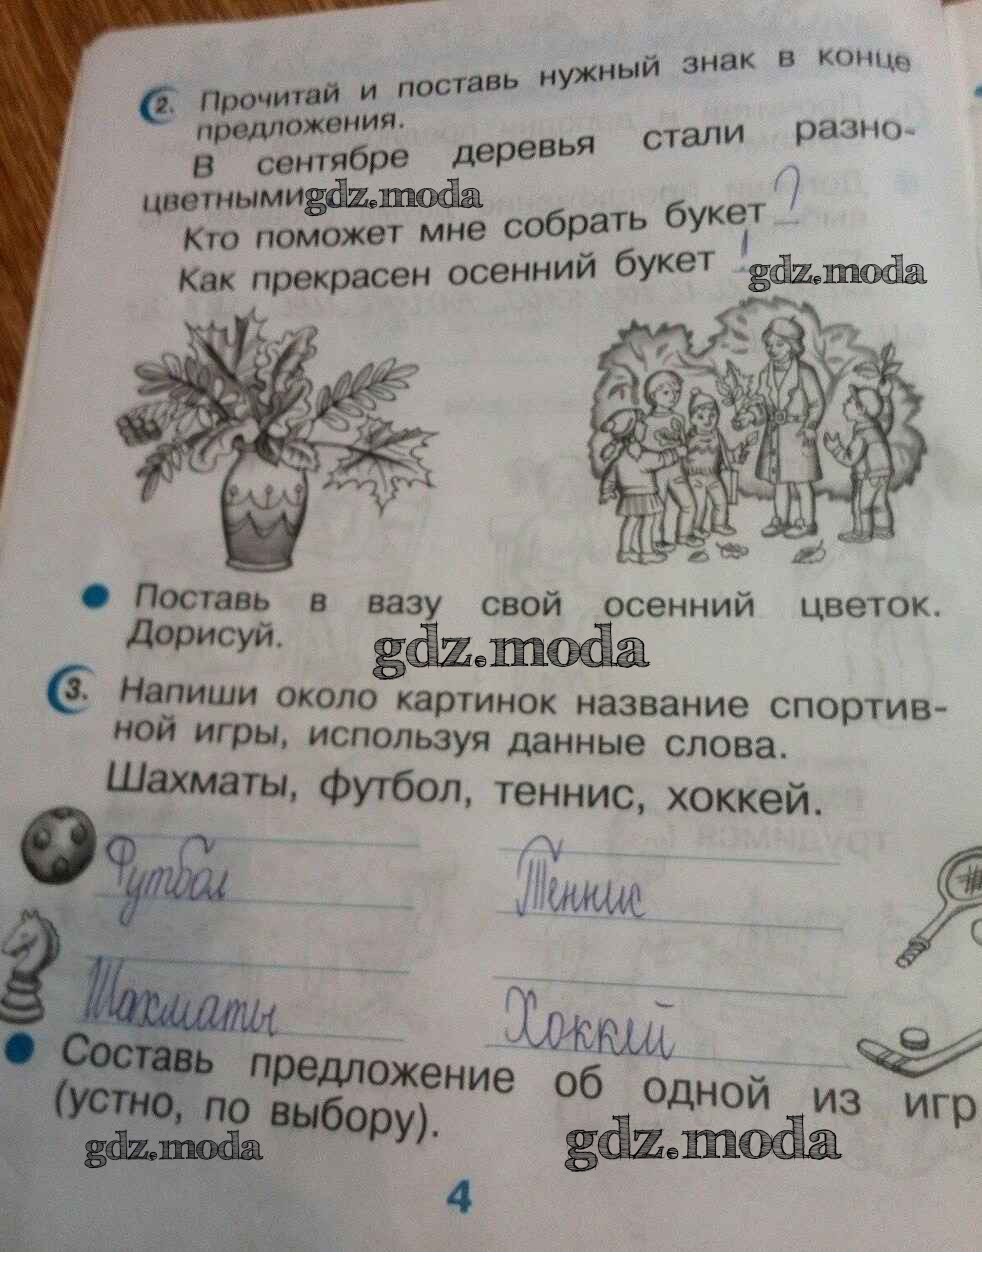 2. Прочитай и поставь нужный знак в конце
предложения.
В сентябре деревья стали разно-
цветными gdz.moda
Кто поможет мне собрать букет ?
Как прекрасен осенний букет !
gdz.moda
Поставь в вазу свой осенний цветок.
Дорисуй.
gdz.moda
3. Напиши около картинок название спортив-
ной игры, используя данные слова.
Шахматы, футбол, теннис, хоккей.
Футбол Теннис
Шахматы Хоккей
Составь предложение об одной из игр
(устно, по выбору).
gdz.moda gdz.moda
4